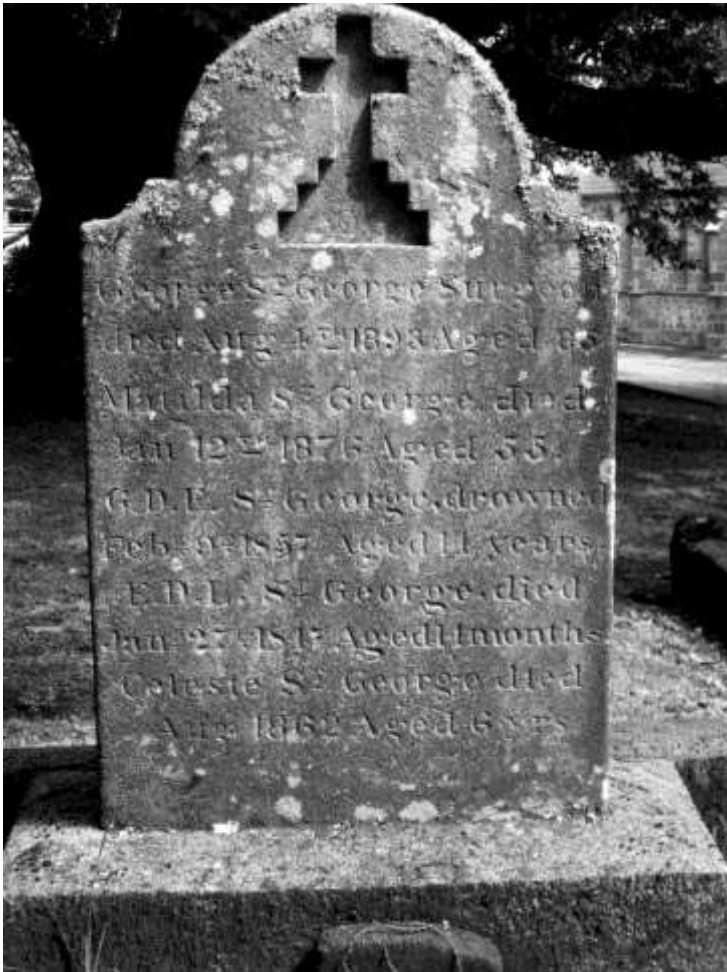 George St. George Surgeon
died Aug 4th 1893 Aged 85
Matilda St. George died
Jan 12th 1876 Aged 55.
G.D.E. St. George, drowned
Feb. 9th 1857 Aged 11 years.
E.D.L. St. George, died
Jan. 27th 1847 Aged 11 months
Celeste St. George died
Aug 1862 Aged 6 yrs